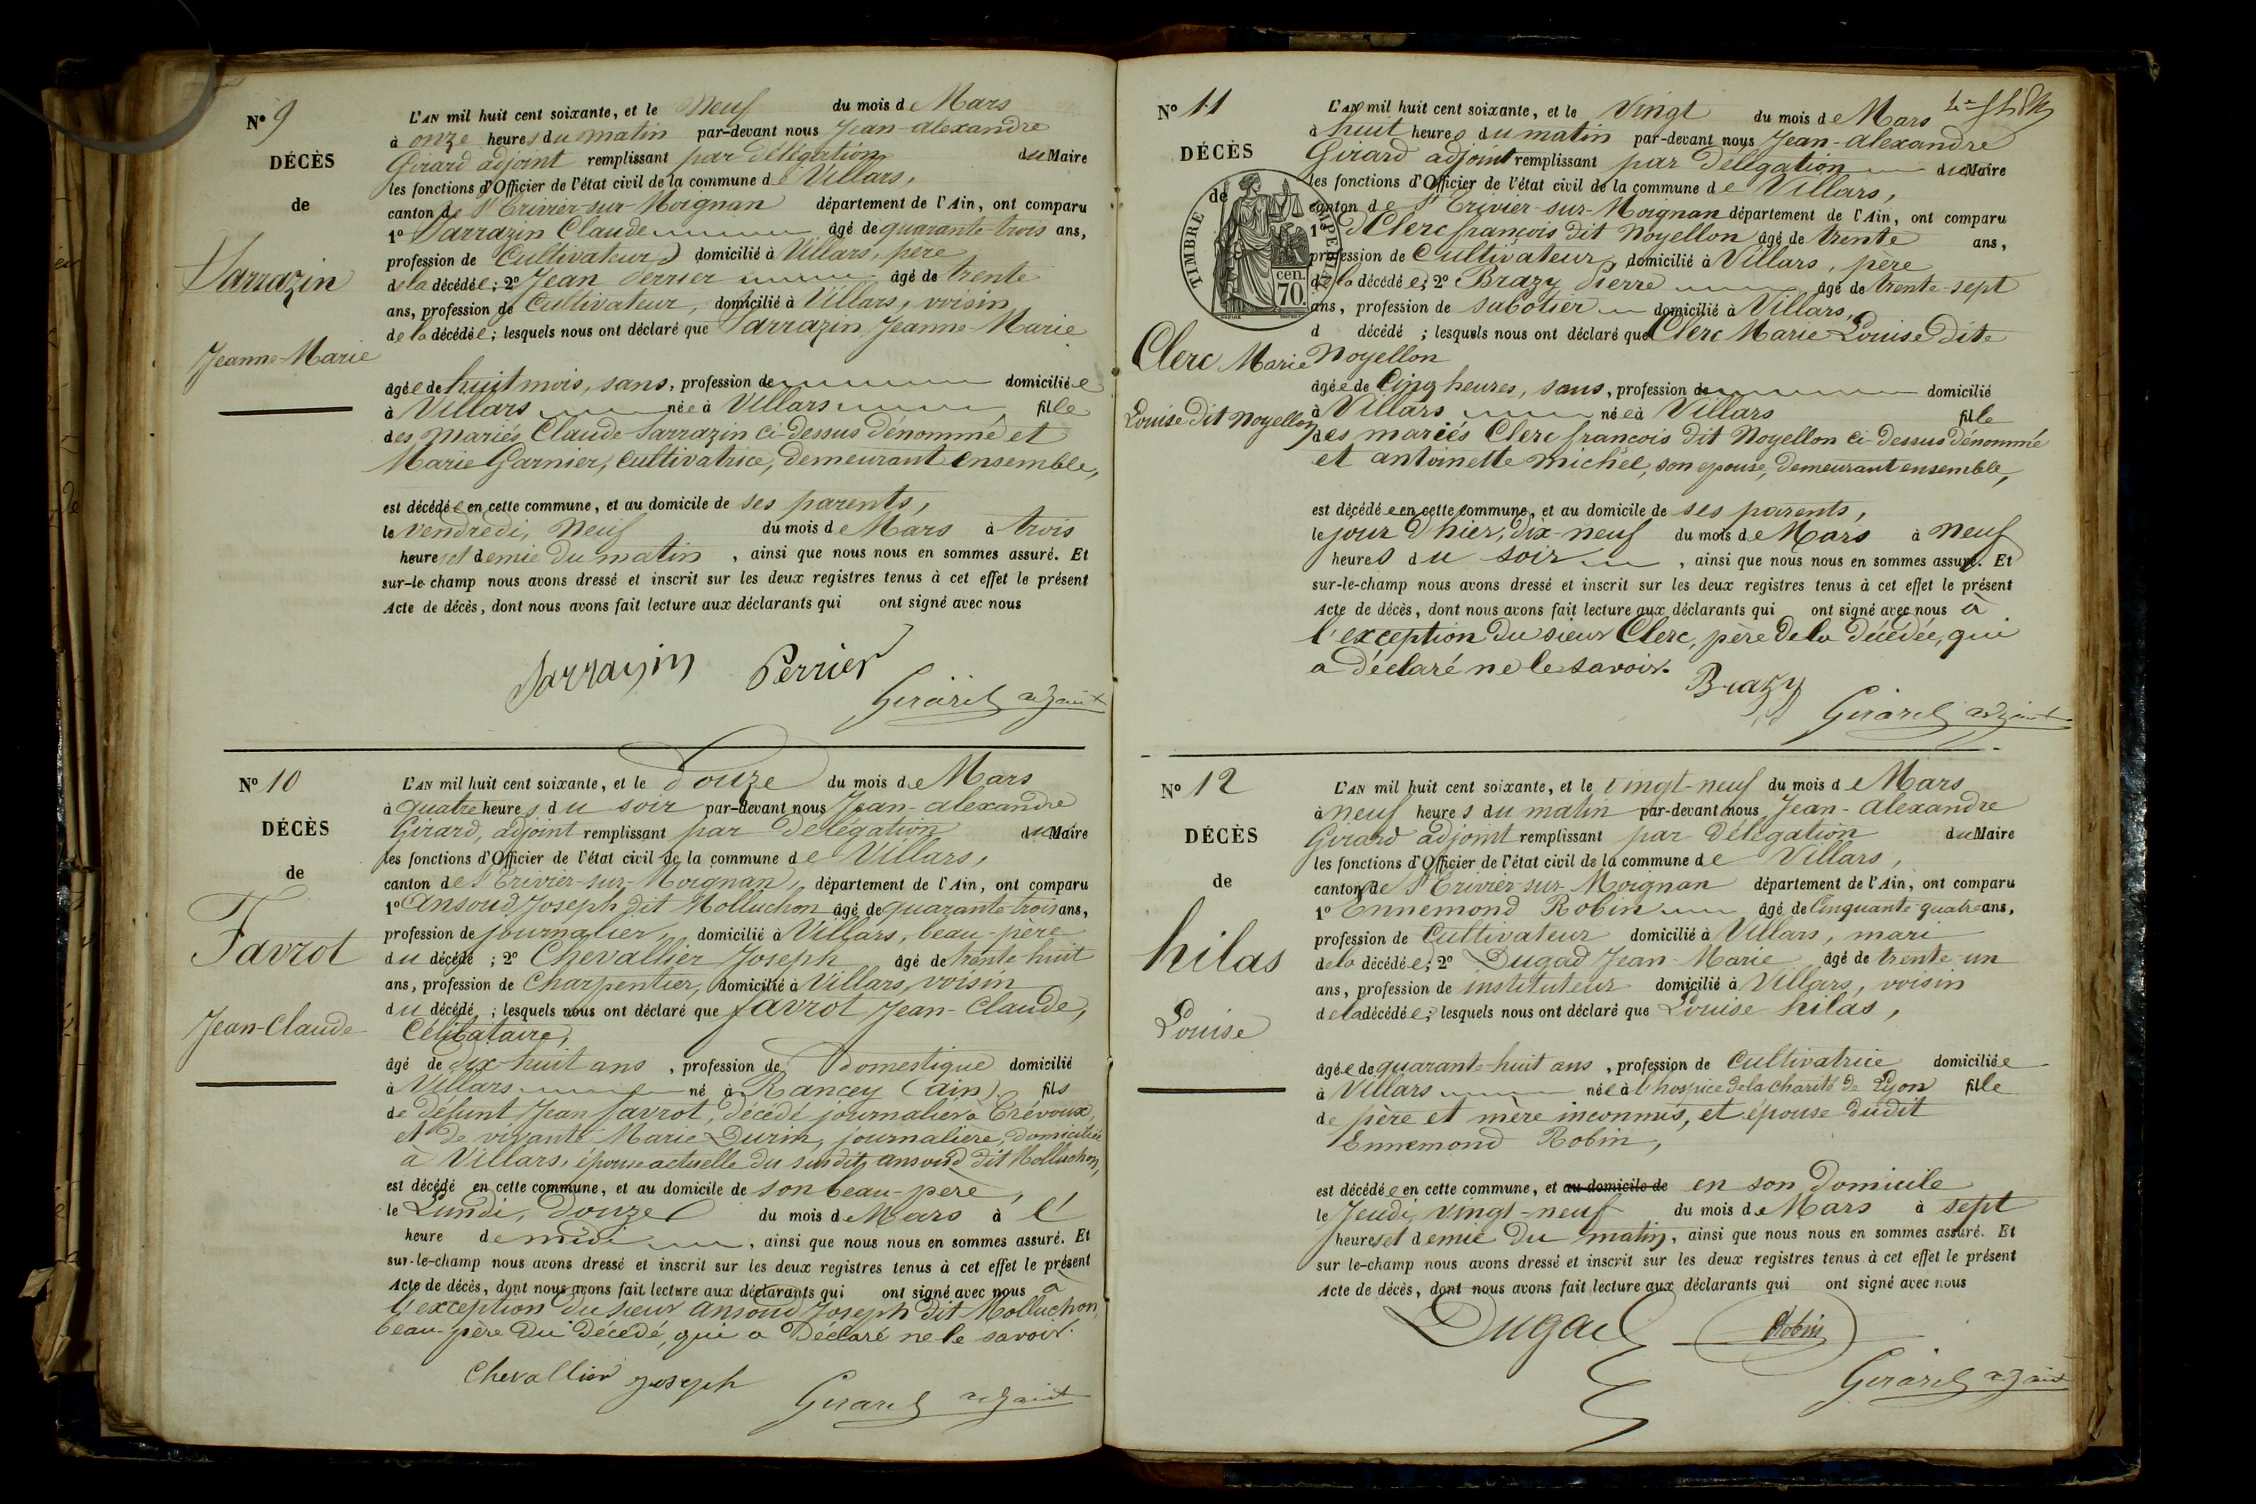 N° 9
DÉCÈS
de
Sarrazin
Jeanne-Marie
L'AN mil huit cent soixante, et le Neuf du mois de Mars
à onze heures du matin par-devant nous Jean-Alexandre
Girard adjoint remplissant par délégation du Maire
les fonctions d'Officier de l'état civil de la commune de Villars,
canton de St Trivier-sur-Moignan département de l'Ain, ont comparu
1° Sarrazin Claude âgé de quarante-trois ans,
profession de Cultivateur, domicilié à Villars, père
de la décédée; 2° Jean Perrier âgé de trente
ans, profession de Cultivateur, domicilié à Villars, voisin
de la décédée; lesquels nous ont déclaré que Sarrazin Jeanne-Marie
âgée de huit mois, sans, profession de domiciliée
à Villars née à Villars fille
des mariés Claude Sarrazin ci-dessus dénommé et
Marie Garnier, cultivatrice, demeurant ensemble,
est décédée en cette commune, et au domicile de ses parents,
le vendredi, Neuf du mois de Mars à trois
heures et demie du matin, ainsi que nous nous en sommes assuré. Et
sur-le-champ nous avons dressé et inscrit sur les deux registres tenus à cet effet le présent
Acte de décès, dont nous avons fait lecture aux déclarants qui ont signé avec nous
Sarrazin Perrier
Girard adjoint
N° 10
DÉCÈS
de
Favrot
Jean-Claude
L'AN mil huit cent soixante, et le Douze du mois de Mars
à quatre heures du soir par-devant nous Jean-Alexandre
Girard, adjoint remplissant par délégation du Maire
les fonctions d'Officier de l'état civil de la commune de Villars,
canton de St Trivier-sur-Moignan, département de l'Ain, ont comparu
1° Ansoud Joseph dit Molluchon âgé de quarante-trois ans,
profession de journalier, domicilié à Villars, beau-père
du décédé; 2° Chevallier Joseph âgé de trente-huit
ans, profession de Charpentier, domicilié à Villars, voisin
du décédé; lesquels nous ont déclaré que favrot Jean-Claude,
Célibataire,
âgé de dix-huit ans, profession de Domestique domicilié
à Villars né à Rancey (Ain) fils
de défunt Jean favrot, décédé journalier à Trévoux,
et de vivante Marie Durin, journalière, domiciliée
à Villars, épouse actuelle du susdit ansoud dit Molluchon,
est décédé en cette commune, et au domicile de son beau-père,
le Lundi, Douze du mois de Mars à l'
heure de midi, ainsi que nous nous en sommes assuré. Et
sur-le-champ nous avons dressé et inscrit sur les deux registres tenus à cet effet le présent
Acte de décès, dont nous avons fait lecture aux déclarants qui ont signé avec nous à
l'exception du sieur ansoud Joseph dit Molluchon,
beau-père du décédé, qui a déclaré ne le savoir.
Chevallier joseph
Girard adjoint
N° 11
DÉCÈS
de
TIMBRE IMPERIAL
70 cen.
Clerc Marie
Louise dit Noyellon
L'AN mil huit cent soixante, et le Vingt du mois de Mars
à huit heures du matin par-devant nous Jean-Alexandre
Girard adjoint remplissant par délégation du Maire
les fonctions d'Officier de l'état civil de la commune de Villars,
canton de St Trivier-sur-Moignan département de l'Ain, ont comparu
1° Clerc françois dit Noyellon âgé de trente ans,
profession de Cultivateur, domicilié à Villars, père
de la décédée; 2° Brazy Pierre âgé de trente-sept
ans, profession de sabotier domicilié à Villars,
d décédé; lesquels nous ont déclaré que Clerc Marie Louise dite
Noyellon
âgée de Cinq heures, sans, profession de domicilié
à Villars née à Villars fille
des mariés Clerc françois dit Noyellon ci-dessus dénommé
et antoinette michel, son epouse, demeurant ensemble,
est décédée en cette commune, et au domicile de ses parents,
le jour d'hier, dix-neuf du mois de Mars à neuf
heures du soir, ainsi que nous nous en sommes assuré. Et
sur-le-champ nous avons dressé et inscrit sur les deux registres tenus à cet effet le présent
Acte de décès, dont nous avons fait lecture aux déclarants qui ont signé avec nous à
l'exception du sieur Clerc, père de la décédée, qui
a déclaré ne le savoir.
Brazy
Girard adjoint
N° 12
DÉCÈS
de
hilas
Louise
L'AN mil huit cent soixante, et le vingt-neuf du mois de Mars
à neuf heures du matin par-devant nous Jean-Alexandre
Girard adjoint remplissant par délégation du Maire
les fonctions d'Officier de l'état civil de la commune de Villars,
canton de St Trivier-sur-Moignan département de l'Ain, ont comparu
1° Ennemond Robin âgé de Cinquante-quatre ans,
profession de Cultivateur domicilié à Villars, mari
de la décédée; 2° Dugad Jean-Marie âgé de trente-un
ans, profession de instituteur domicilié à Villars, voisin
de la décédée; lesquels nous ont déclaré que Louise hilas,
âgée de quarante-huit ans, profession de Cultivatrice domiciliée
à Villars née à l'hospice de la charité de Lyon fille
de père et mère inconnus, et épouse dudit
Ennemond Robin,
est décédée en cette commune, et au domicile de en son domicile
le Jeudi, vingt-neuf du mois de Mars à sept
heures et demie du matin, ainsi que nous nous en sommes assuré. Et
sur le-champ nous avons dressé et inscrit sur les deux registres tenus à cet effet le présent
Acte de décès, dont nous avons fait lecture aux déclarants qui ont signé avec nous
Dugad Robin
Girard adjoint